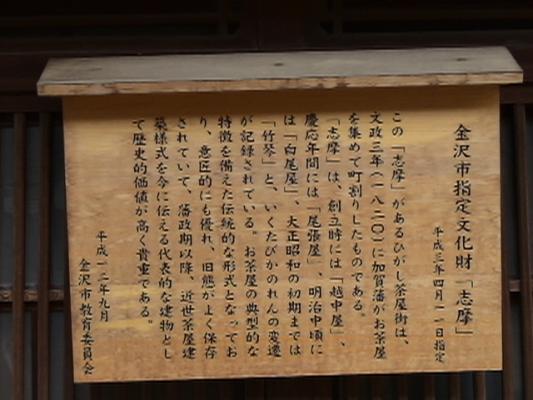 金沢市指定文化財「志摩」
平成三年四月一一日指定
この「志摩」があるひがし茶屋街は、
文政三年(一八二〇)に加賀藩がお茶屋
を集めて町割りしたものである。
「志摩」は、創立時には「越中屋」、
慶応年間には「尾張屋」、明治中頃に
は「白尾屋」、大正昭和の初期までは
「竹琴」と、いくたびかのれんの変遷
が記録されている。お茶屋の典型的な
特徴を備えた伝統的な形式となってお
り、意匠的にも優れ、旧態がよく保存
されていて、藩政期以降、近世茶屋建
築様式を今に伝える代表的な建物とし
て歴史的価値が高く貴重である。
平成一二年九月
金沢市教育委員会